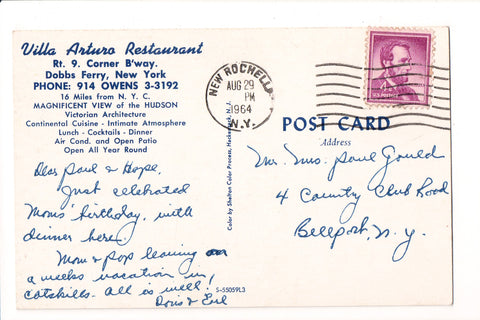 Villa Arturo Restaurant
Rt. 9. Corner B'way.
Dobbs Ferry, New York
PHONE: 914 OWENS 3-3192
16 Miles from N. Y. C.
MAGNIFICENT VIEW of the HUDSON
Victorian Architecture
Continental Cuisine - Intimate Atmosphere
Lunch - Cocktails - Dinner
Air Cond. and Open Patio
Open All Year Round
Dear Paul & Hope,
Just celebrated
Mom's birthday, with
dinner here.
Mom & Pop leaving on
a weeks vacation in
Catskills. All is well!
Doris & Earl
Color by Shelton Color Process, Hackensack, N. J.
S-55059L3
NEW ROCHELLE
AUG 29
PM
1964
N.Y.
POST CARD
Address
Mr. Mrs. Paul Gould
4 Country Club Road
Bellport, N. Y.